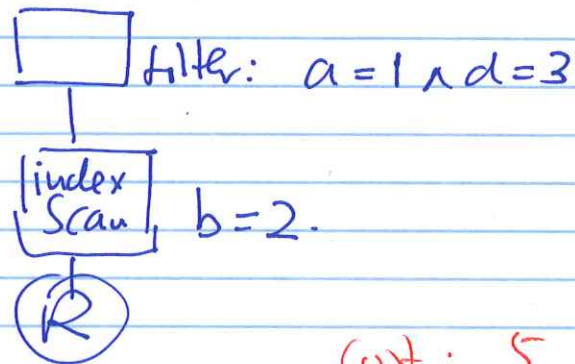 filter: a = 1 ∧ d = 3
index
Scan
b = 2.
R
Cost: 5